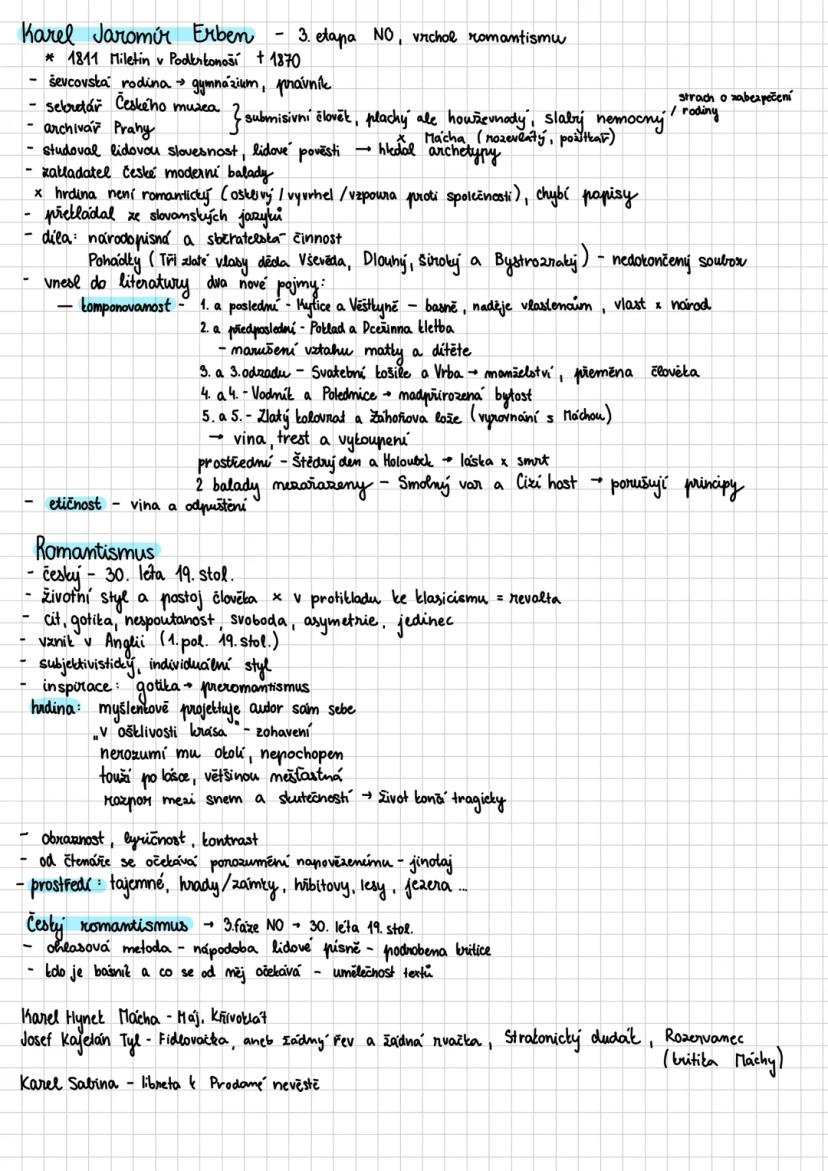 Karel Jaromír Erben - 3. etapa NO, vrchol romantismu
* 1811 Miletín v Podkrkonoší † 1870
- ševcovská rodina → gymnázium, právník
- sekretář Českého muzea
- archivář Prahy
} submisivní člověk, plachý ale houževnatý, slabý nemocný / strach o zabezpečení rodiny
x Mácha (rozevlátý, požitkář)
- studoval lidovou slovesnost, lidové pověsti → hledal archetypy
- zakladatel české moderní balady
x hrdina není romantický (ošklivý / vyvrhel / vzpoura proti společnosti), chybí popisy
- překládal ze slovanských jazyků
- díla: národopisná a sběratelská činnost
Pohádky (Tři zlaté vlasy děda Vševěda, Dlouhý, Široký a Bystrozraký) - nedokončený soubor
- vnesl do literatury dva nové pojmy:
— komponovanost - 1. a poslední - Kytice a Věštkyně - básně, naděje vlastencům, vlast x národ
2. a předposlední - Poklad a Dceřinna kletba
- narušení vztahu matky a dítěte
3. a 3. odzadu - Svatební košile a Vrba → manželství, přeměna člověka
4. a 4. - Vodník a Polednice → nadpřirozená bytost
5. a 5. - Zlatý kolovrat a Záhořova lože (vyrovnání s Máchou)
→ vina, trest a vykoupení
prostřední - Štědrý den a Holoubek → láska x smrt
2 balady nezařazeny - Smolný var a Cizí host → porušují principy
- etičnost - vina a odpuštění
Romantismus
- český - 30. léta 19. stol.
- životní styl a postoj člověka x v protikladu ke klasicismu = revolta
- cit, gotika, nespoutanost, svoboda, asymetrie, jedinec
- vznik v Anglii (1. pol. 19. stol.)
- subjektivistický, individuální styl
- inspirace: gotika → preromantismus
hrdina: myšlenkově projektuje autor sám sebe
"v ošklivosti krása" - zohavení
nerozumí mu okolí, nepochopen
touží po lásce, většinou nešťastná
rozpor mezi snem a skutečností → život končí tragicky
- obraznost, lyričnost, kontrast
- od čtenáře se očekává porozumění napovězenímu - jinotaj
- prostředí: tajemné, hrady/zámky, hřbitovy, lesy, jezera ...
Český romantismus → 3. fáze NO → 30. léta 19. stol.
- ohlasová metoda - nápodoba lidové písně - podrobena kritice
- kdo je básník a co se od něj očekává - umělečnost textů
Karel Hynek Mácha - Máj, Křivoklát
Josef Kajetán Tyl - Fidlovačka, aneb žádný řev a žádná rvačka, Strakonický dudák, Rozervanec
(kritika Máchy)
Karel Sabina - libreta k Prodané nevěstě